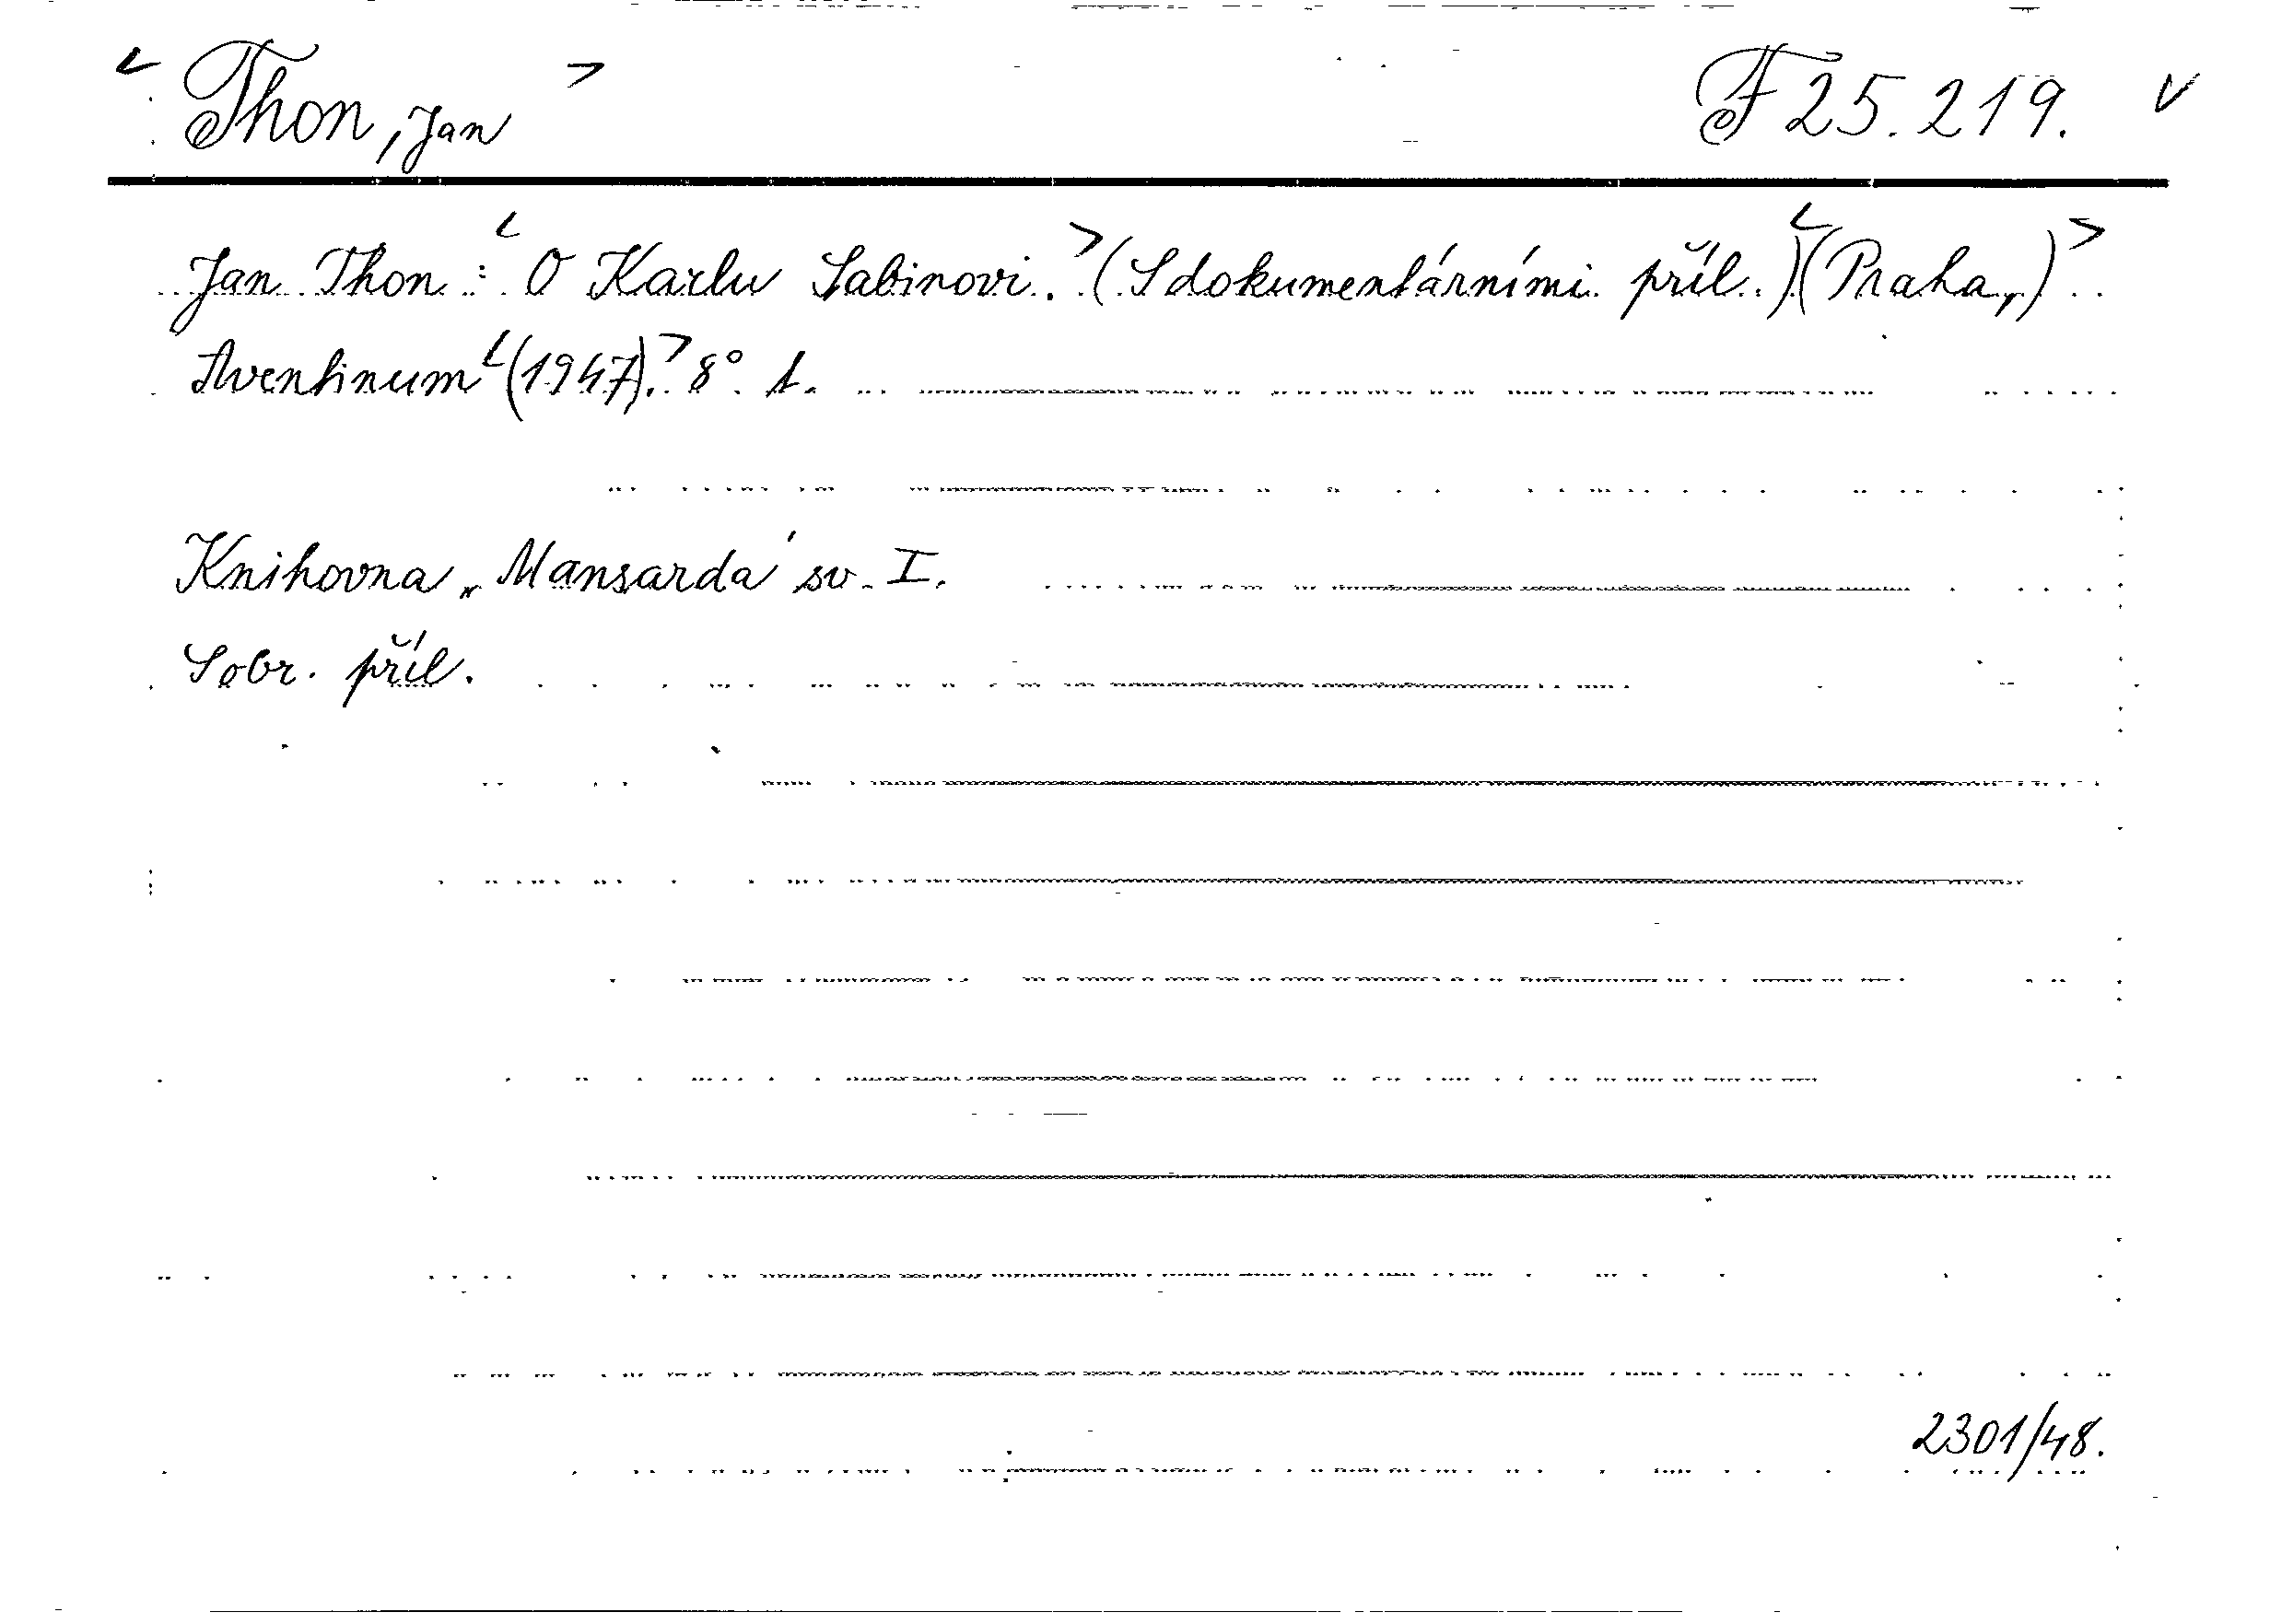 < Thon, Jan > F 25.219. v
Jan Thon: < O Karlu Sabinovi. > (S dokumentárními příl.) < (Praha,) >
Aventinum < (1947). > 8° 1.
Knihovna „Mansarda' sv. I.
S obr. příl.
2301/48.